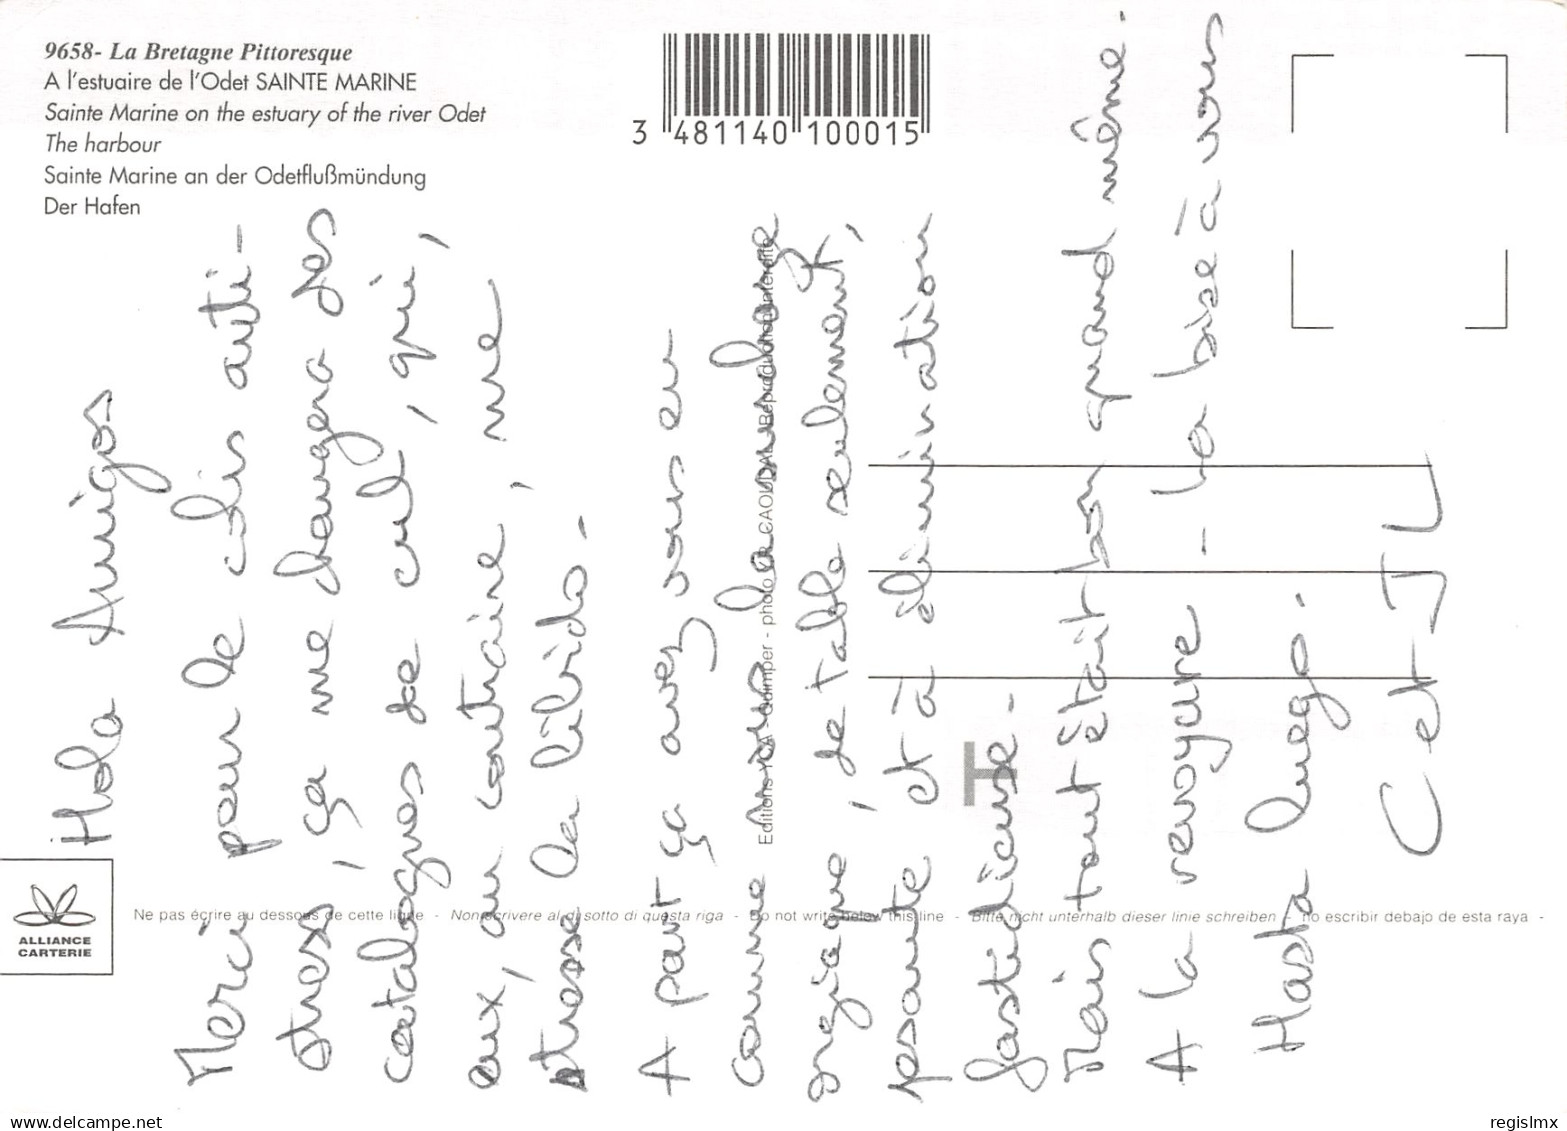 9658- La Bretagne Pittoresque
A l'estuaire de l'Odet SAINTE MARINE
Sainte Marine on the estuary of the river Odet
The harbour
Sainte Marine an der Odetflußmündung
Der Hafen
3 481140 100015
Hola Amigos
Merci pour le colis anti-
stress, ça me changera des
catalogues de cul, qui,
eux, au contraire, me
stresse la libido.
A part ça avez vous eu
comme nous la
orgiaque, de table seulement,
pesante et à élimination
fastidieuse.
Mais tout était bon quand même.
A la revoyure - La bise à vous
Hasta luego.
C et JL
Editions YCA - Quimper - photo R. CAOUDAL - Reproduction interdite
H
ALLIANCE
CARTERIE
Ne pas écrire au dessous de cette ligne - Non scrivere al di sotto di questa riga - Do not write below this line - Bitte nicht unterhalb dieser linie schreiben - no escribir debajo de esta raya -
www.delcampe.net
regislmx